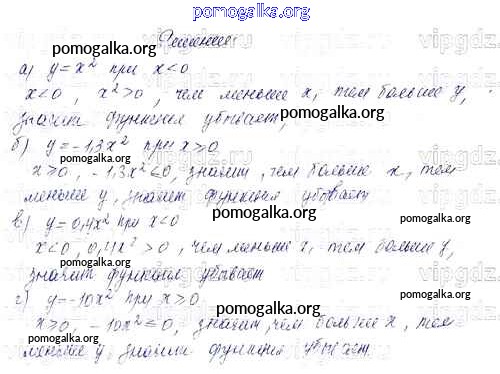 pomogalka.org
Решение
pomogalka.org
а) y = x² при x<0
x<0 , x²>0 , чем меньше x, тем больше y,
значит функция убывает,
pomogalka.org
б) y = -1,3x² при x≥0
x≥0, -1,3x²≤0, значит, чем больше x, тем
меньше y, значит функция убывает
pomogalka.org
в) y = 0,4x² при x<0
pomogalka.org
x<0, 0,4x²>0, чем меньше x, тем больше y,
значит функция убывает
pomogalka.org
г) y = -10x² при x≥0
pomogalka.org
x≥0, -10x²≤0, значит, чем больше x, тем
меньше y, значит функция убывает.
pomogalka.org